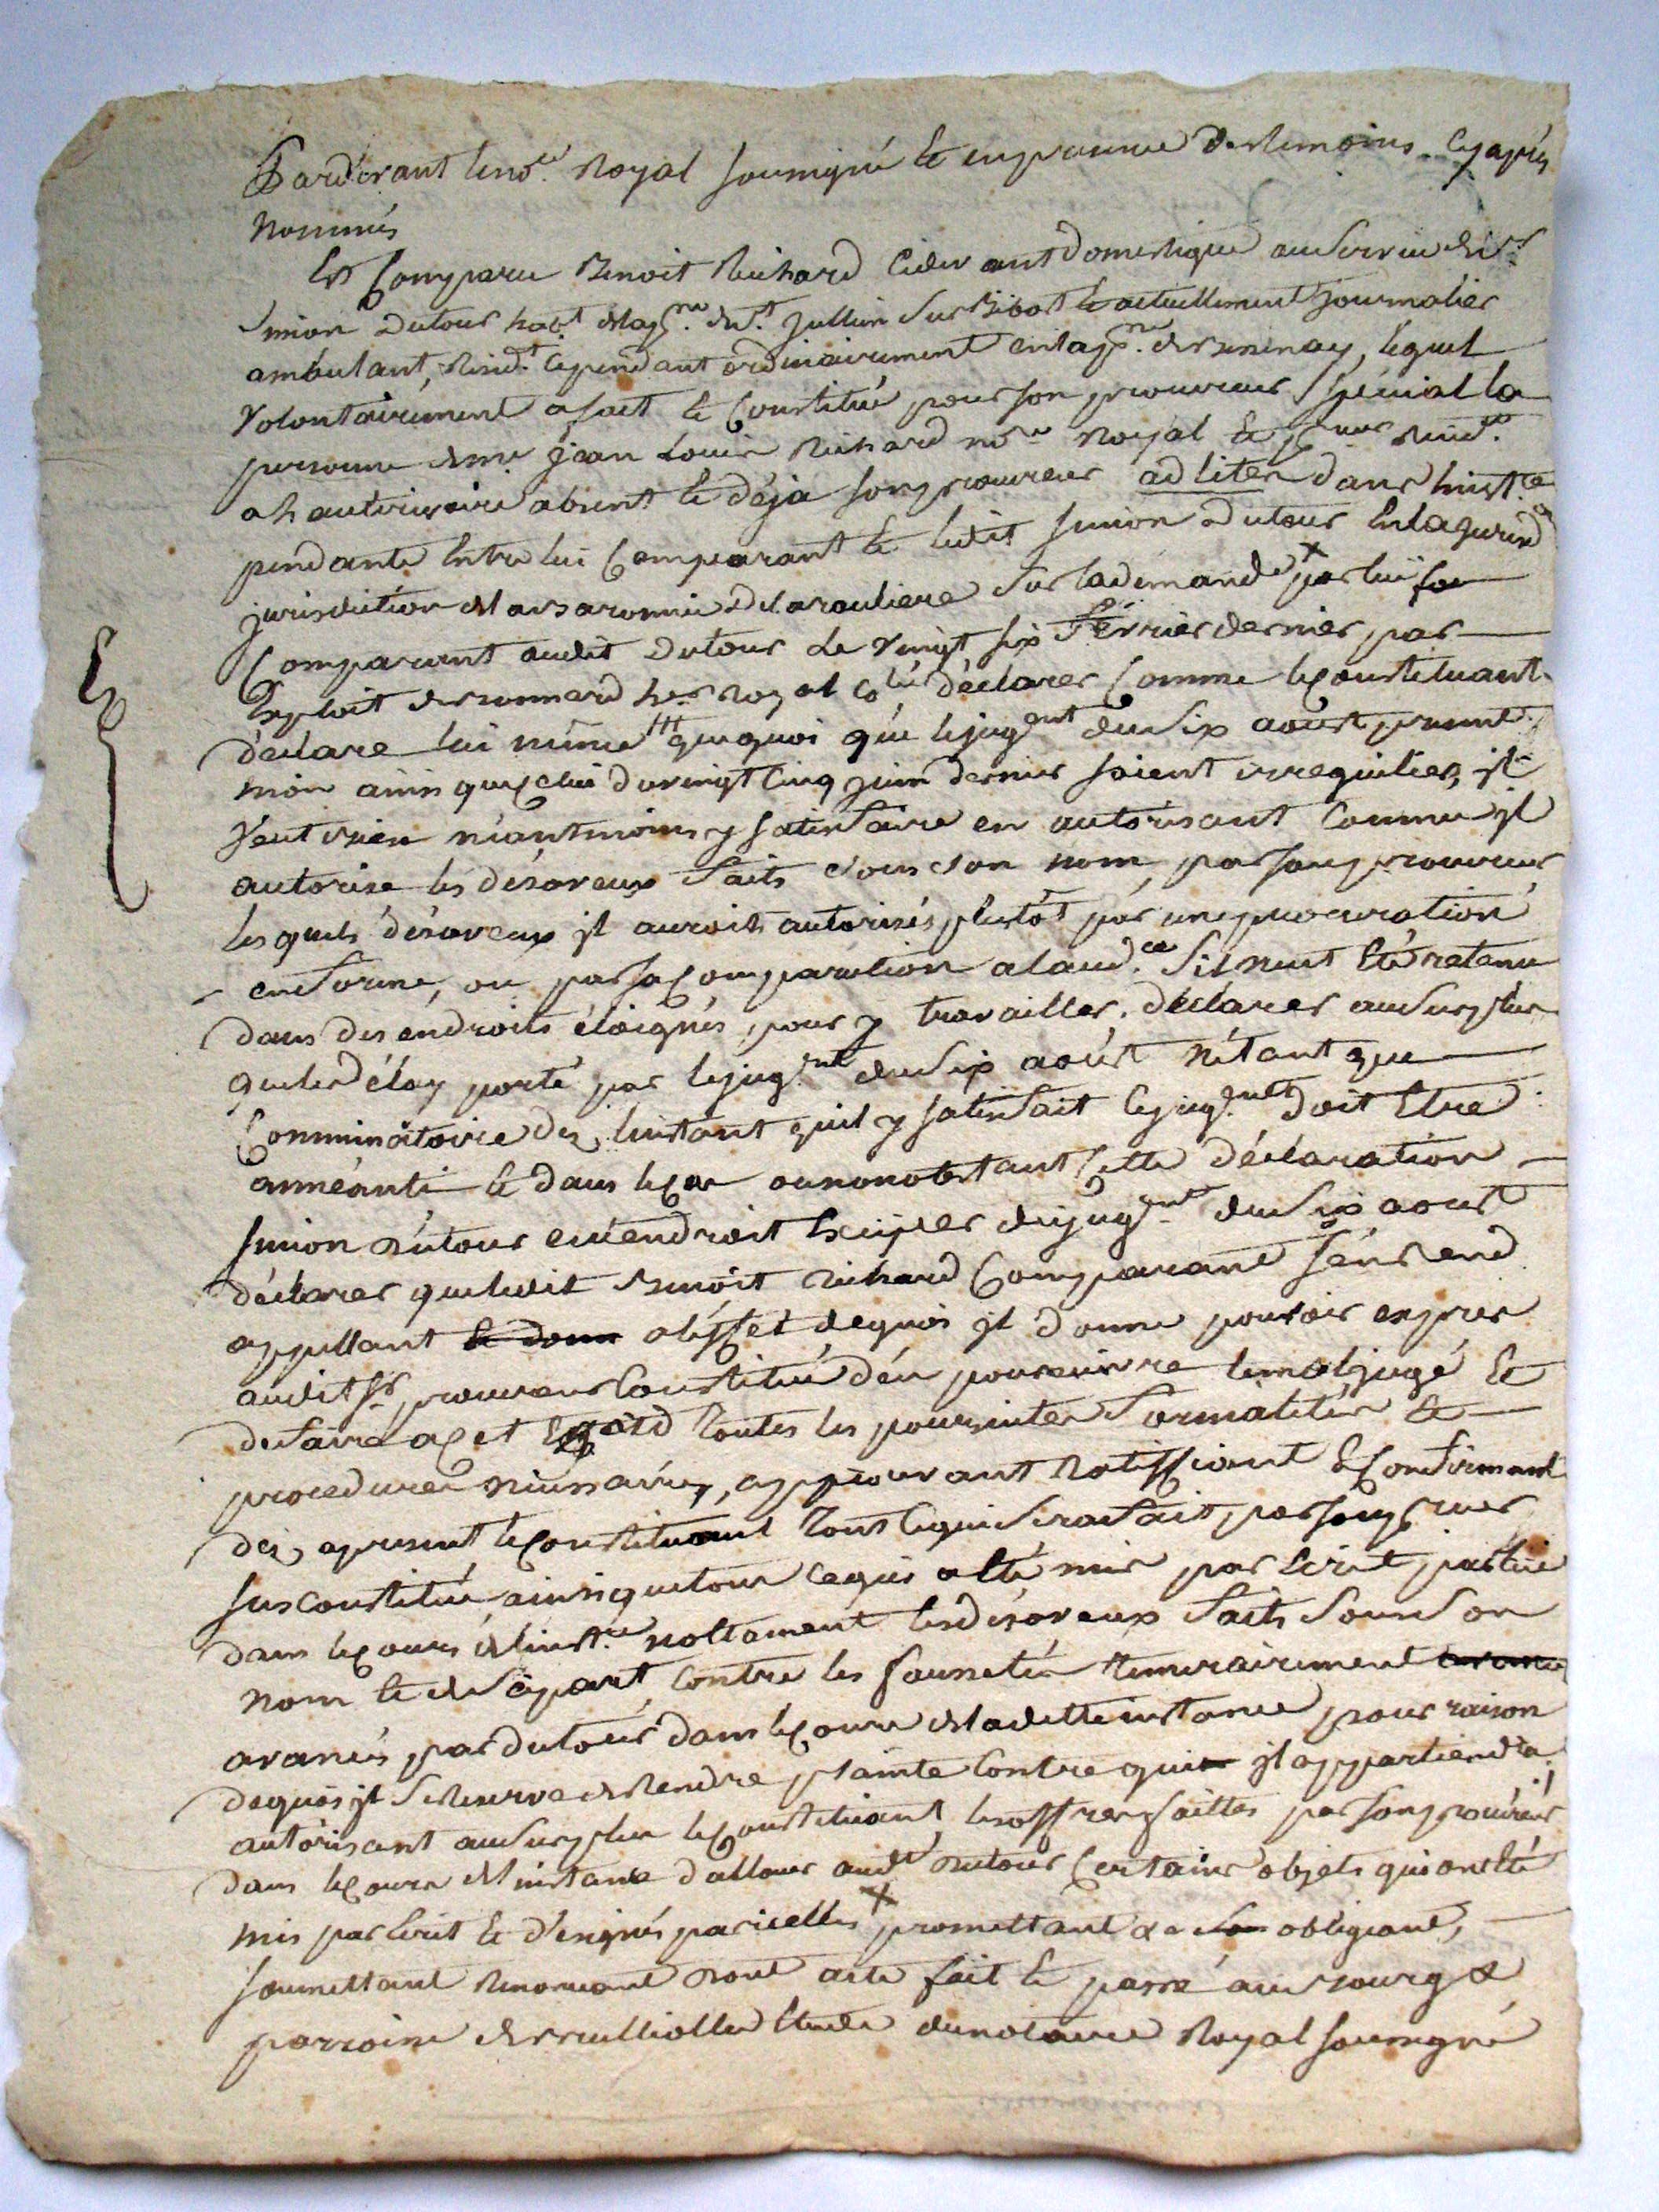 Pardevant le no.re Royal soussigné et en presence des temoins cy après
Nommés
Est comparu Benoit Richard cidevant domestique au service de s.r
Simion Dutour hab.t de la p.sse de s.t Jullien sur Bibost et actuellement journalier
ambulant, resid.t cependant ordinairement en la p.sse de Bessenay, lequel
volontairement a fait et constitué pour son procureur spécial la
personne de me Jean Louis Richard no.re Royal et p.reur resid.t
a hauterivoire absent et déja son procureur ad lites dans l'inst.ce
pendante entre lui comparant et ledit Simion Dutour en la
jurisdiction de la baronnie de la rouliere sur la demande + par lui
comparant audit Dutour le vingt six Février dernier, par
Exploit de Bonnard h.er royal déclarer comme le constituant
déclare lui même que quoi que le jug.ent du six aoust present
mois ainsi que celui du vingt cinq juin dernier soient irreguliers, jl
veut bien néantmoins y satisfaire en autorisant comme jl
autorise les désaveux faits sous son nom, par son procureur
lesquels désaveux jl auroit autorisés plustôt par une procuration
en forme, ou par sa comparution a laud.ce s'il n'eut été retenu
dans des endroits éloignés, pour y travailler. déclarer au surplus
que le délay porté par le jug.ent du six août n'étant que
comminatoire dez linstant quil y satisfait le jug.ent doit être
annéanti et dans le cas ou nonobstant cette déclaration
Simion Dutour en droit Exciper du jug.ent du six aoust
déclarer que ledit Benoit Richard comparant s'en rend
appellant a l'effet de quoi jl donne pouvoir exprès
audit s.r procureur constitué d'en poursuivre le mal jugé et
de faire a cet Egard toutes les poursuites formalités et
procedures necessaires, approuvant ratiffiant et confirmant
dez apresent le constituant tout ce qui sera fait par son p.reur
sus constitué, ainsi que tout ce qui a été mis par Ecrit par lui
dans le cours de l'inst.ce nottament les désaveux faits sous son
nom et de sa part contre les faussetés temerairement
avancés par dutour dans le cours de la ditte instance pour raison
de quoi jl se reserve de rendre plainte contre qui jl appartiendra
autorisant au surplus le constituant les offres faittes par son procureur
dans le cours de linstance d'allouer aud.t Dutour certains objets qui ont été
mis par Ecrit et d'ésignés par icelles + promettant &a obligeant,
soumettant renonceant dont acte fait et passé au bourg &
parroisse de Brulliolles Etude du notaire Royal soussigné